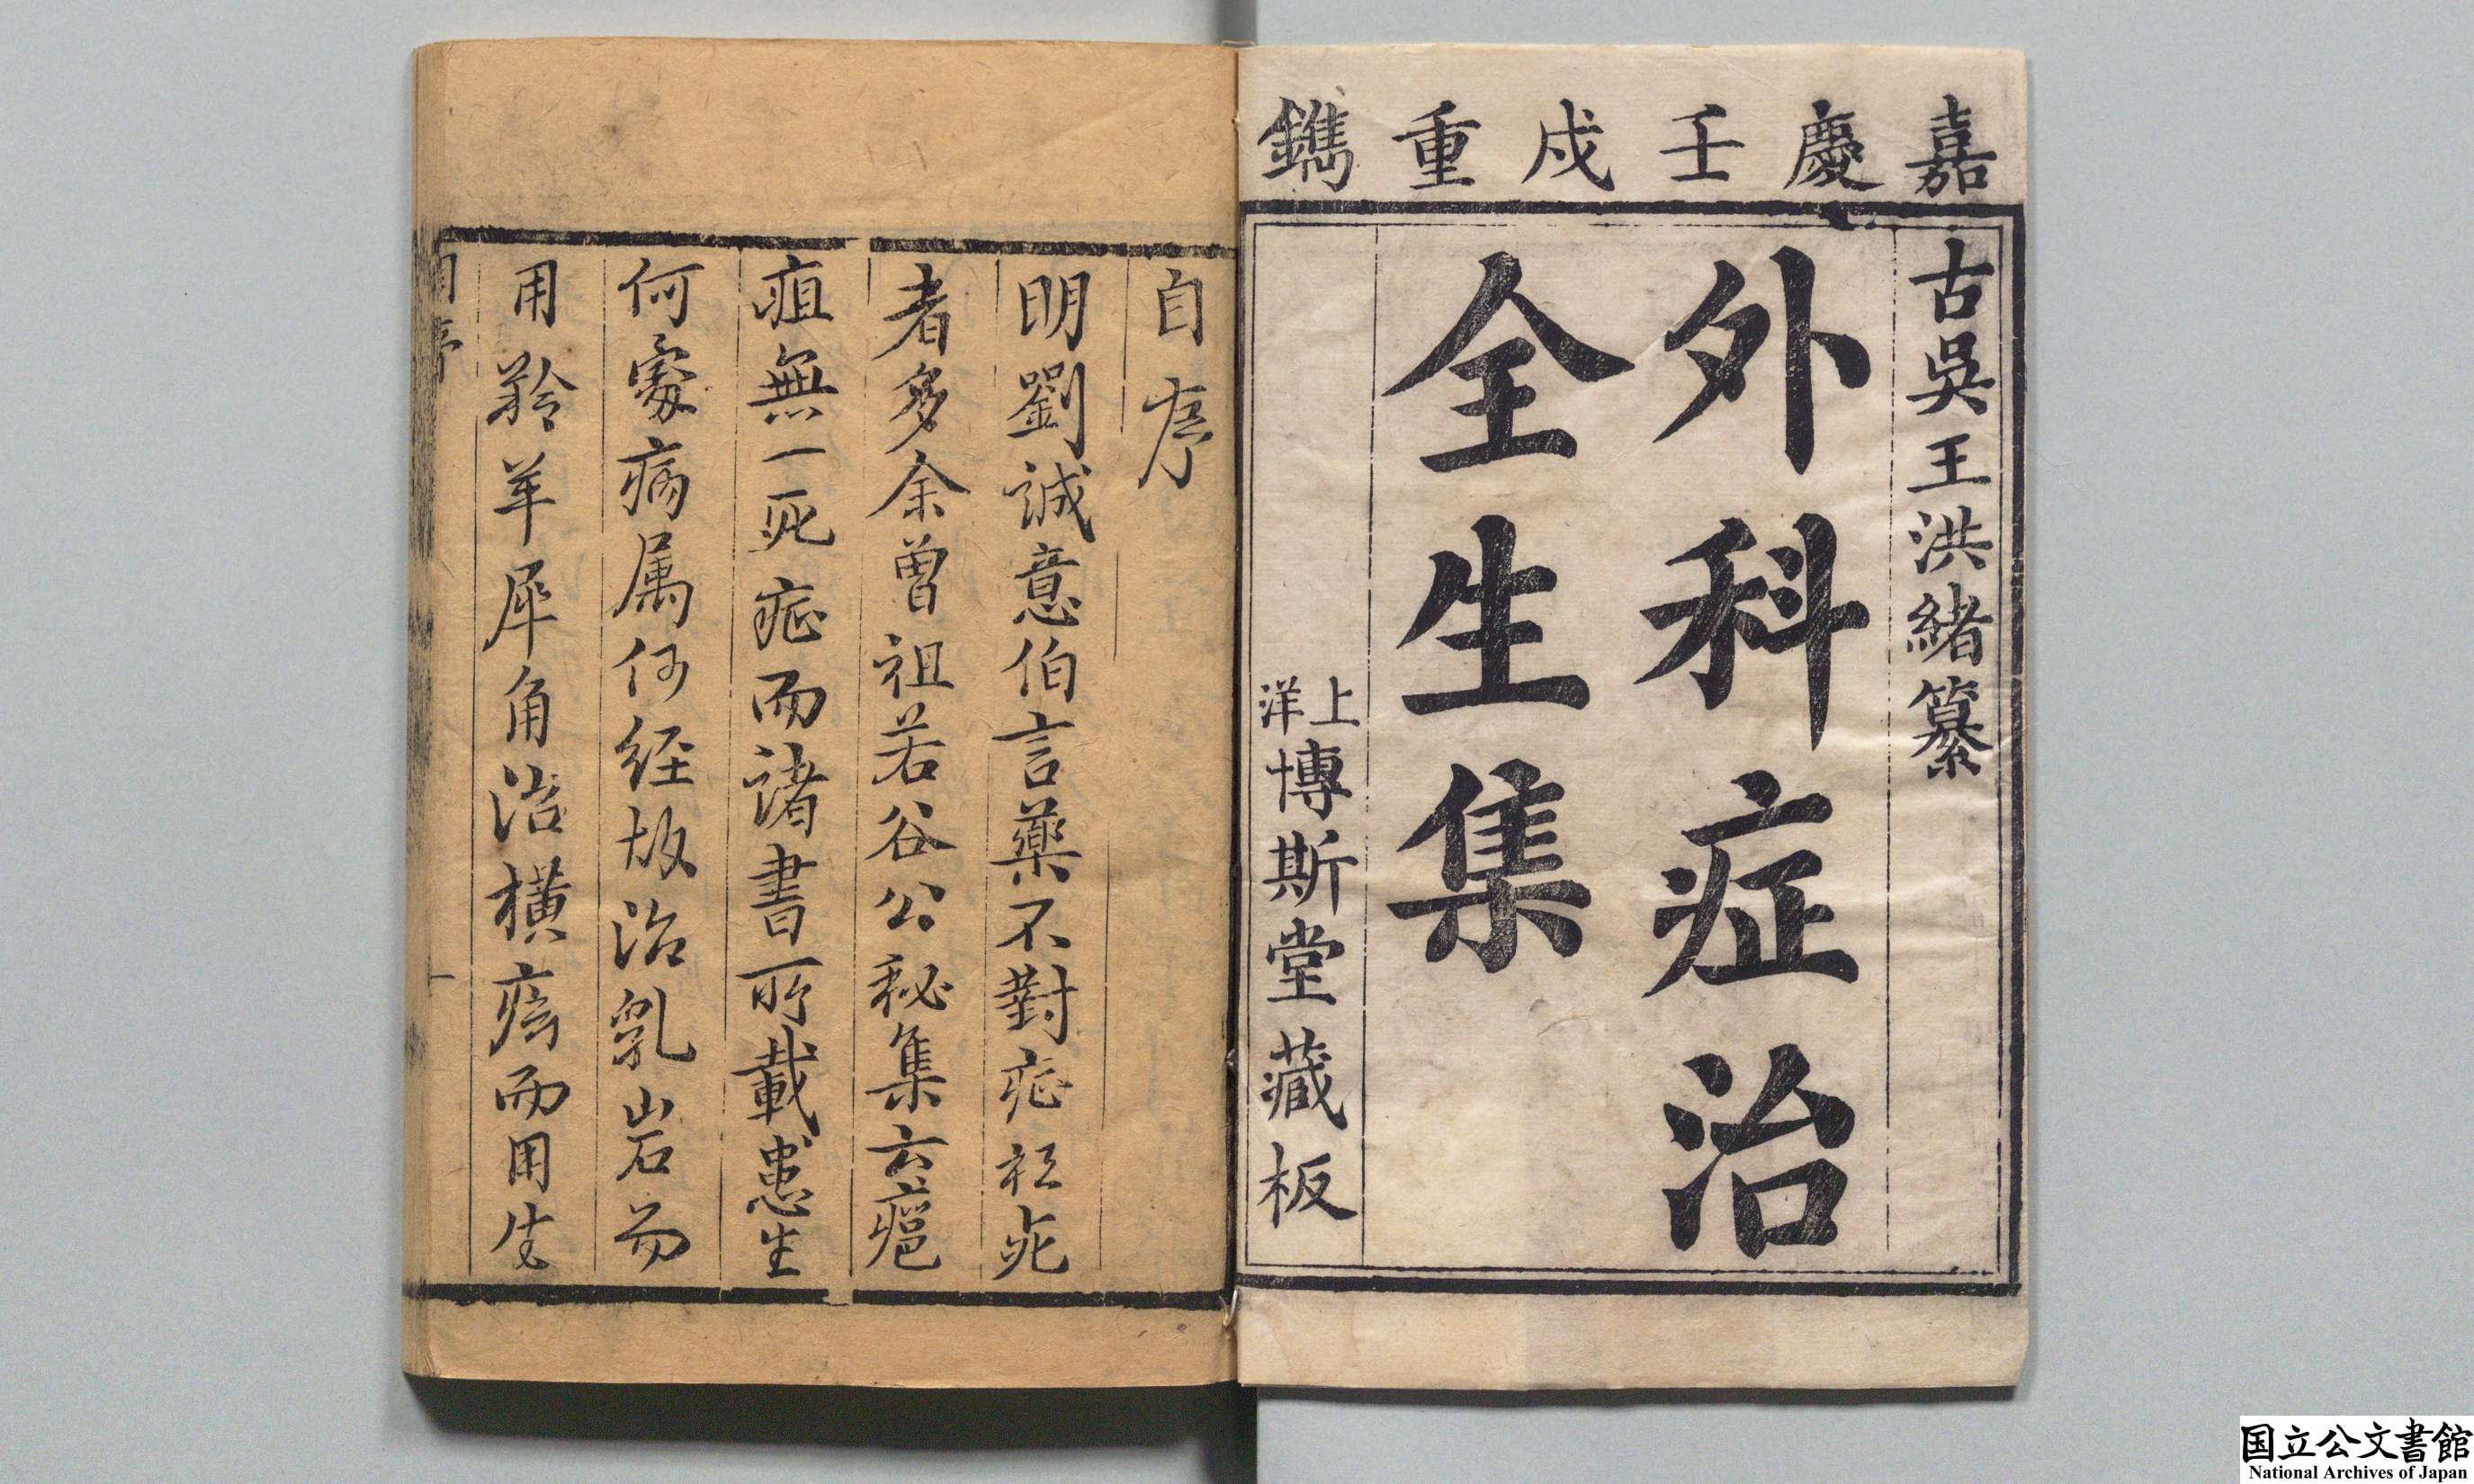 嘉慶壬戌重鐫
古吳王洪緒纂
外科症治
全生集
上洋博斯堂藏板
自序
明劉誠意伯言藥不對症枉死
者多余曾祖若谷公秘集云癰
疽無一死症而諸書所載患生
何處病屬何經故治乳岩而
用羚羊犀角治橫痃而用生
自序
一
国立公文書館
National Archives of Japan